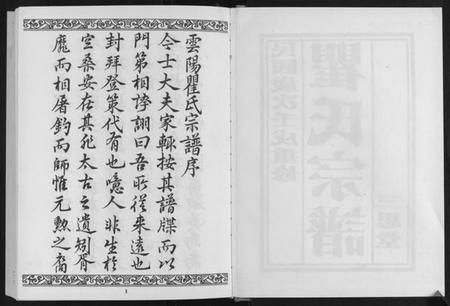 雲陽瞿氏宗譜序
今士大夫家輙按其譜牒而以
門第相誇詡曰吾所從來遠也
封拜登策代有也噫人非生於
空桑安在其非太古之遺矧胥
靡而相屠釣而師惟元勲之裔
1
瞿氏宗譜